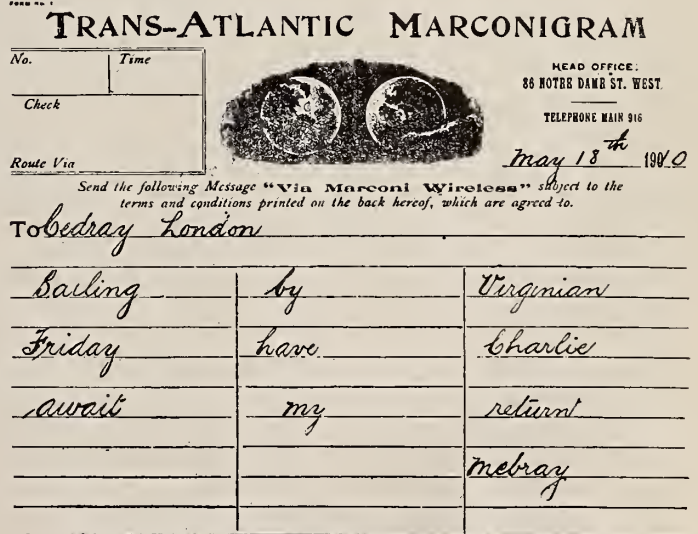 FORM No. 1
TRANS-ATLANTIC MARCONIGRAM
No. Time
Check
Route Via
HEAD OFFICE:
86 NOTRE DAME ST. WEST.
TELEPHONE MAIN 916
May 18th 1910
Send the following Message "Via Marconi Wireless" subject to the
terms and conditions printed on the back hereof, which are agreed to.
To Cedray London
Sailing by Virginian
Friday have Charlie
await my return
Mcbray